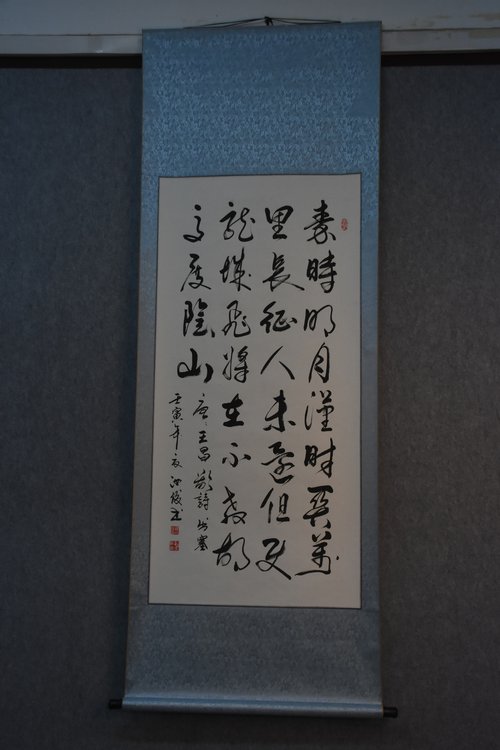 秦時明月漢時關萬
里長征人未還但使
龍城飛將在不教胡
馬度陰山
唐王昌齡詩出塞
壬寅年夏書